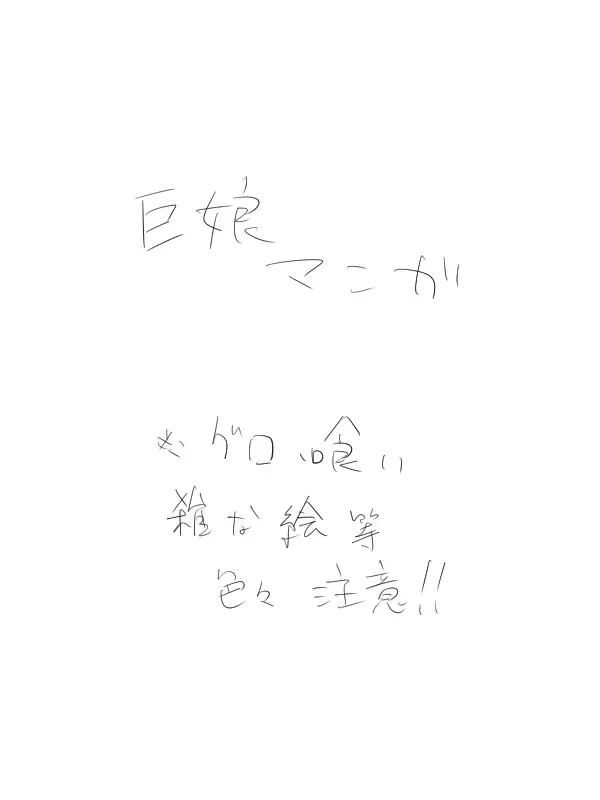 巨娘
マンガ
※ グロ、喰い
雑な絵等
色々注意!!